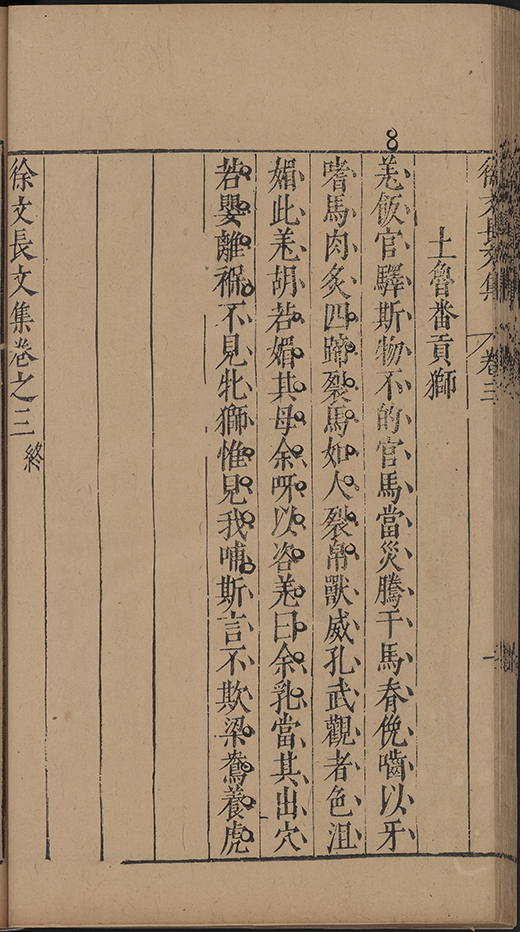 徐文長文集 卷三
土魯番貢獅
8
羗飯官驛斯物不的官馬當災騰于馬脊俛嚙以牙
嗜馬肉炙四蹄裂馬如人裂帛獸威孔武觀者色沮
媚此羗胡若媚其母余呀以咨羗曰余乳當其出穴
若嬰離褓不見牝獅惟見我哺斯言不欺梁鴦養虎
徐文長文集卷之三 終